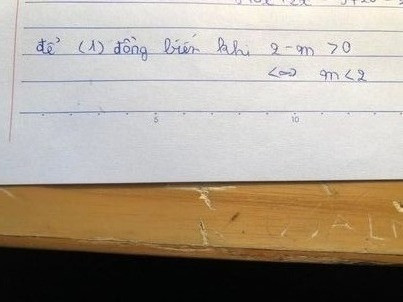 để (1) đồng biến khi 2-m >0
<=> m<2
5 10